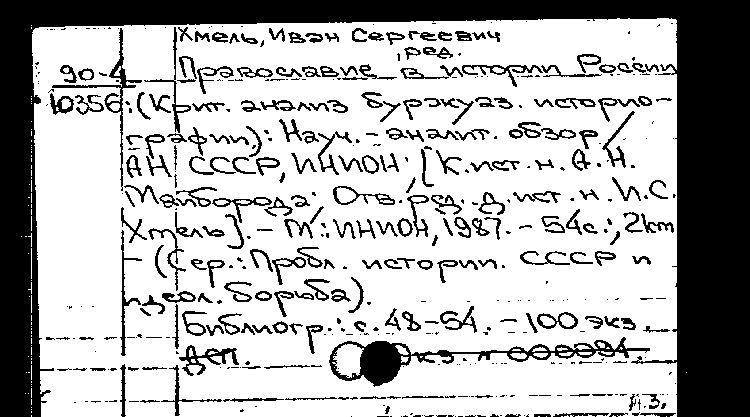 Хмель, Иван Сергеевич
, ред.
90-4 Православие в истории России
10356 : (Крит. анализ буржуаз. историо-
графии): Науч.-аналит. обзор /
АН СССР, ИНИОН; [К.ист.н. А.Н.
Майборода; Отв. ред. д.ист.н. И.С.
Хмель]. - М.: ИНИОН, 1987. - 54с.;
- (Сер.: Пробл. истории. СССР и
идеол. борьба).
Библиогр.: с. 48-54. - 100 экз.
Деп. экз.